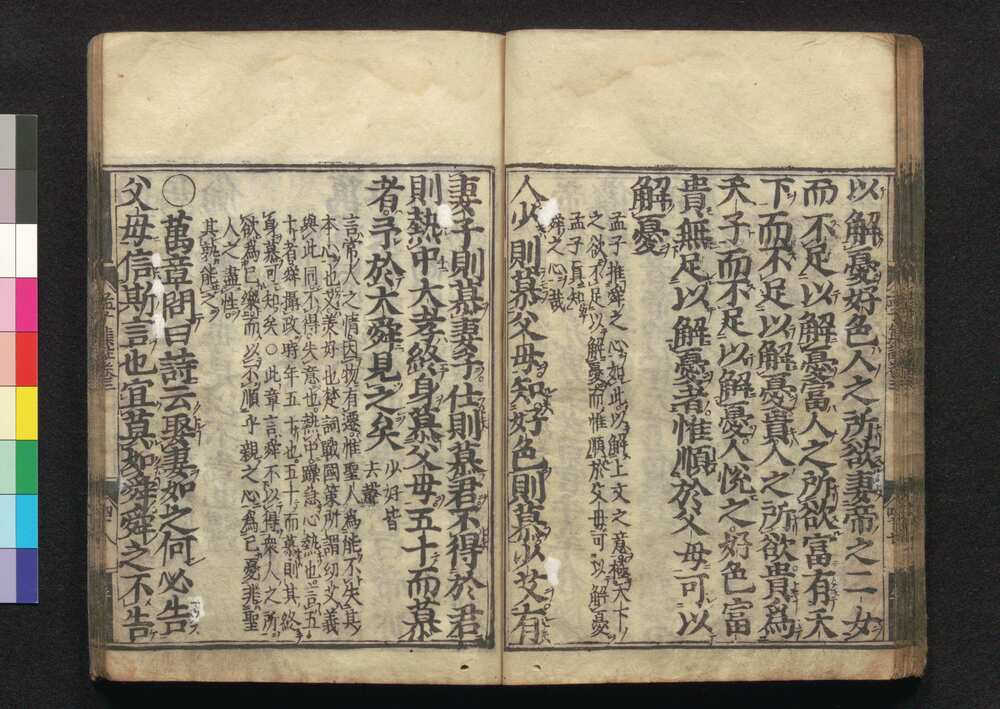 以解憂好色人之所欲妻帝之二女
而不足以解憂富人之所欲富有天
下而不足以解憂貴人之所欲貴爲
天子而不足以解憂人悅之好色富
貴無足以解憂者惟順於父母可以
解憂
孟子推舜之心如此以解上文之意極天下
之欲不足以解憂而惟順於父母可以解憂
孟子真知
舜之心哉
人少則慕父母知好色則慕少艾有
妻子則慕妻子仕則慕君不得於君
則熱中大孝終身慕父母五十而慕
者予於大舜見之矣
少好皆
去聲
言常人之情因物有遷惟聖人爲能不失其
本心也艾美好也楚詞戰國策所謂幼艾義
與此同不得失意也熱中躁急心熱也言五
十者舜攝政時年五十也五十而慕則其終
身慕可知矣○此章言舜不以得衆人之所
欲爲已樂而以不順乎親之心爲已憂非聖
人之盡性
其孰能之
○萬章問曰詩云娶妻如之何必告
父母信斯言也宜莫如舜舜之不告